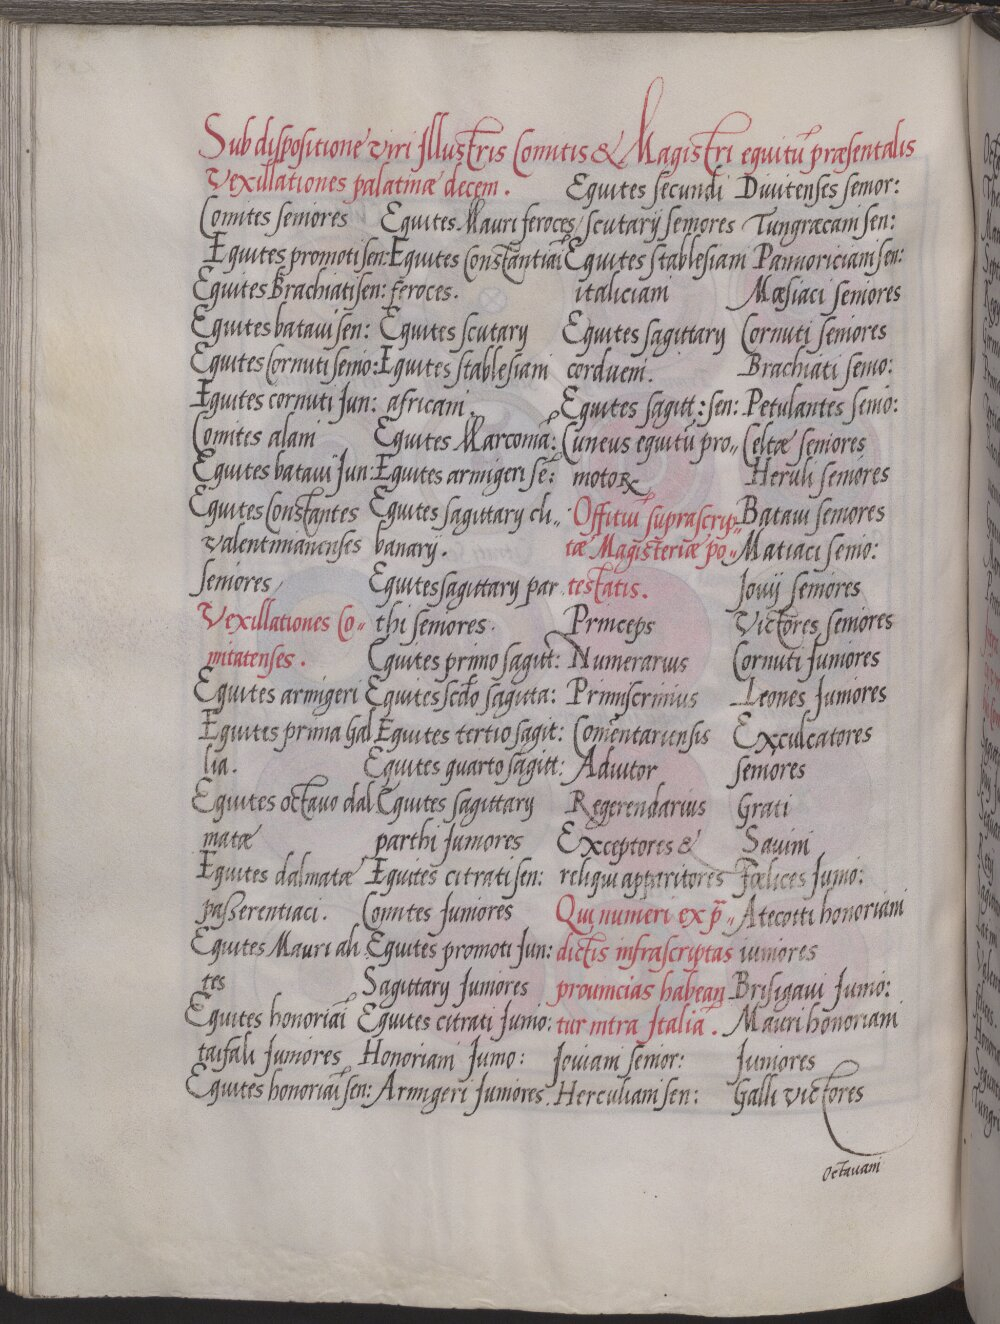 Sub dispositione viri Illustris Comitis & Magistri equitū præsentalis
Vexillationes palatinæ decem.
Comites seniores
Equites promoti sen:
Equites Brachiati sen:
Equites bataui sen:
Equites Cornuti senio:
Equites cornuti Jun:
Comites alani
Equites bataui Jun:
Equites Constantes
valentinianenses
seniores
Vexillationes Co-
mitatenses.
Equites armigeri
Equites prima Gal
lia.
Equites octauo dal
matæ
Equites dalmatæ
passerentiaci.
Equites Mauri ali
tes
Equites honoriāi
taifali Juniores
Equites honoriāi sen:
Equites Mauri feroces
Equites Constantiāi
feroces.
Equites scutarij
Equites stablesiani
africani.
Equites Marcomā:
Equites armigeri sē:
Equites sagittarij cli-
banarij.
Equites sagittarij par
thi seniores.
Equites primo sagitt:
Equites scd̄o sagitta:
Equites tertio sagit:
Equites quarto sagitt:
Equites sagittarij
parthi Juniores
Equites citrati sen:
Comites Juniores
Equites promoti Jun:
Sagittarij Juniores
Equites citrati Junio:
Honoriani Junio:
Armigeri Juniores.
Equites secundi
scutarij seniores
Equites stablesiani
italiciani
Equites sagittarij
corduem.
Equites sagitt: sen:
Cuneus equitū pro-
motoꝝ
Offitiū suprascrip-
tæ Magisteriæ po-
testatis.
Princeps
Numerarius
Primiscrinius
Comēntariensis
Adiutor
Regerendarius
Exceptores &
reliqui apparitores
Qui numeri ex p̄-
dictis infrascriptas
prouincias habean
tur intra Italiā.
Jouiani senior:
Herculiani sen:
Diuitenses senior:
Tungræcani sen:
Pannoriciani sen:
Mæsiaci seniores
Cornuti seniores
Brachiati senio:
Petulantes senio:
Celtæ seniores
Heruli seniores
Bataui seniores
Matiaci senio:
Jouij seniores
Victores seniores
Cornuti Juniores
Leones Juniores
Exculcatores
seniores
Grati
Sauini
Fœlices Junio:
Atecotti honoriani
iuniores
Brisigaui Junio:
Mauri honoriani
Juniores
Galli victores
Octauani